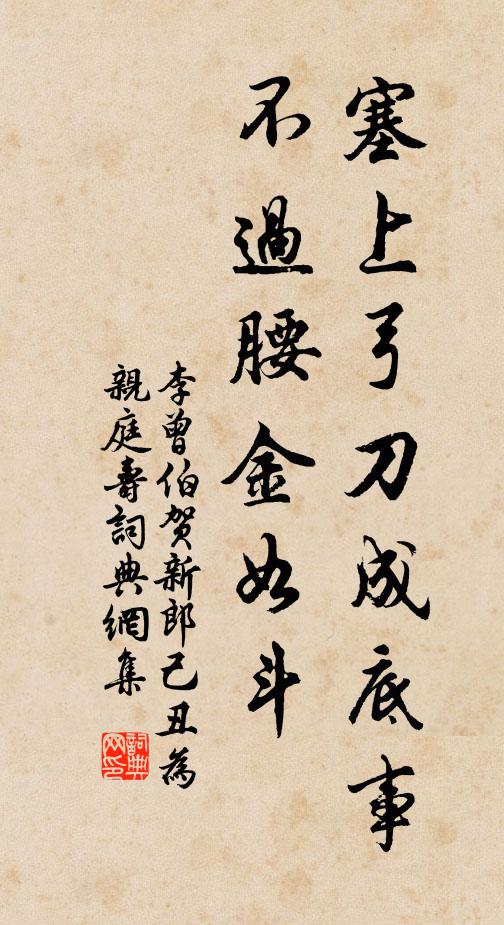 塞上弓刀成底事
不過腰金如斗
李曾伯賀新郎己丑為
親庭壽詞典網集
詞典网印